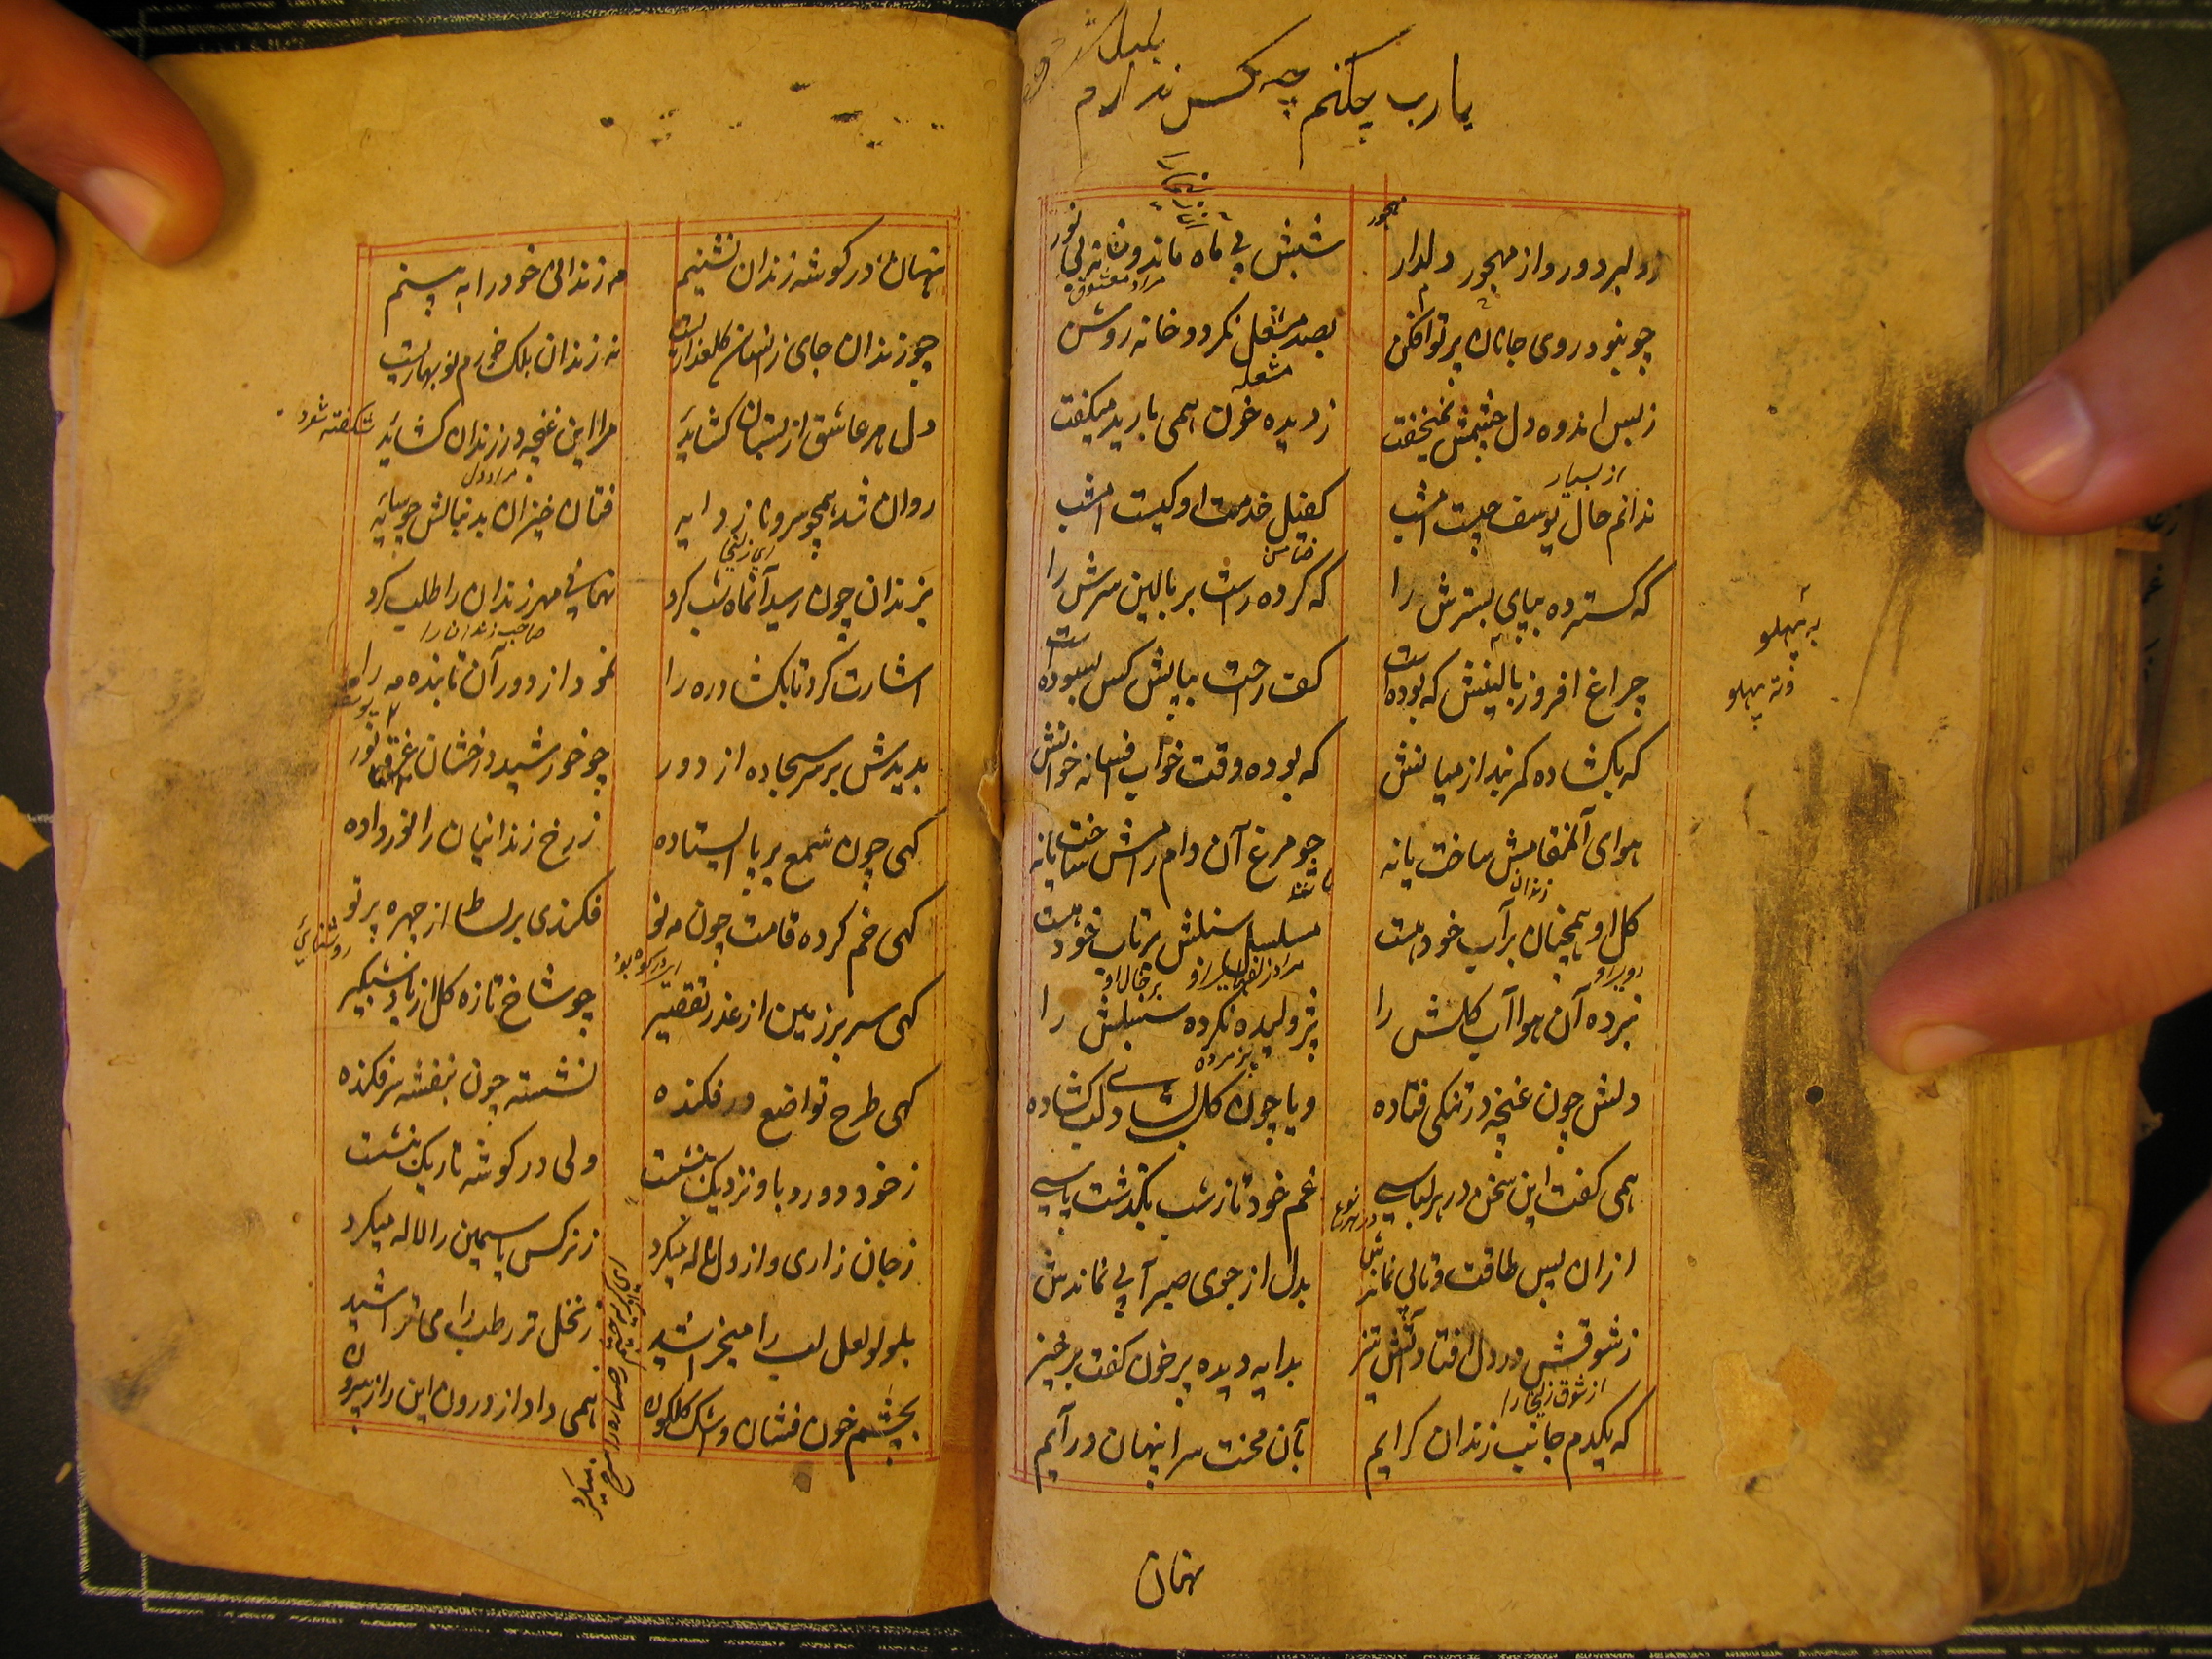 یارب چکنم چه کس ندارم
شبش بی ماه ماند و خانه بی نور
چو نبود روی جانان پرتو افکن
بصد مشعل نکردد خانه روشن
مراد معشوق
زبس اندوه دل چشمش نمیخفت
ز دیده خون همی بارید میکفت
مشعله
ندانم حال یوسف چیست امشب
کفیل خدمت او کیست امشب
از بسیار
ضامن
که گسترده بپای بسترش را
که کرده راست بر بالین سرش را
چراغ افروز بالینش که بوده است
کف راحت بپایش کس بسوده است
که بکشاده کمربند از میانش
که بوده وقت خواب افسانه خوانش
هوای آنمقامش ساخت یا نه
چو مرغ آن دام رامش ساخت یا نه
زندان
کل او همچنان بر آب خود هست
مسلسل سنبلش بر تاب خود هست
نبرده آن هوا آب کلش را
پژولیده نکرده سنبلش را
پژمرده
دلش چون غنچه در تنکی فتاده
و یا چون کل بشادی لب کشاده
همی کفت این سخن در هر لباسی
غم خود تا ز شب بگذشت پاسی
از ان پس طاقت و تابی نماندش
بدل از جوی صبر آبی نماندش
ز شوقش در دل افتاد آتش تیز
بدایه دیده پر خون کفت برخیز
از شوق زلیخا را
که یکدم جانب زندان کرایم
بآن محنت سرا پنهان در آیم
به پهلو
نهان
نهان در کوشه زندان نشینیم
مه زندانی خود را به بینم
چو زندان جای زانسان کلعذاریست
نه زندان بلک خرم نوبهاریست
دل هر عاشق از بستان کشاید
مرا این غنچه در زندان کشاید
شکفته شود
مراد دل
روان شد همچو سرو ناز دایه
فتان خیزان بدنبالش چو سایه
ای زلیخا
بزندان چون رسید آنماه شب کرد
نهانی مهر زندان را طلب کرد
صاحب زندان را
اشارت کرد تا بکشاد در را
نمود از دور آن تابنده مه را
بدیدش بر سر سجاده از دور
چو خورشید درخشان غرقه نور
کهی چون شمع بر پا ایستاده
ز رخ زندانیان را نور داده
کهی خم کرده قامت چون مه نو
فکندی بر بساط از چهره پرتو
روشنائی
کهی سر بر زمین از عذر تقصیر
چو شاخ تازه کل از باد شبکیر
کهی طرح تواضع در فکنده
نشسته چون بنفشه سر فکنده
ز خود دور و باو نزدیک بنشست
ولی در کوشه تاریک بنشست
ز جان زاری و از دل ناله میکرد
ز نرکس یاسمین را لاله میکرد
بلولو لعل لب را میخراشید
ز نخل تر رطب را می تراشید
بچشم خون فشان و اشک کلکون
همی داد از درون این راز بیرون